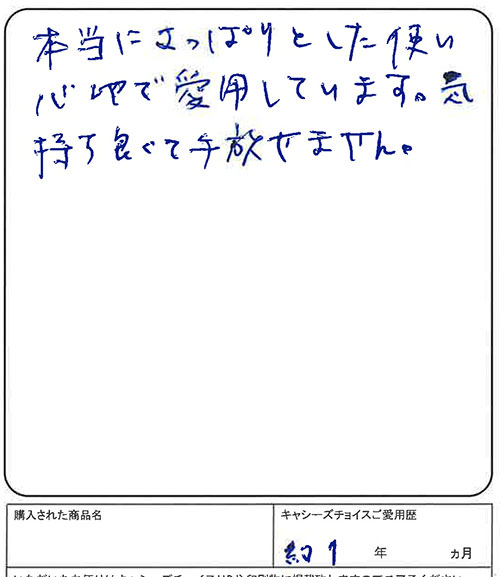 本当にさっぱりとした使い
心地で愛用しています。気
持ち良くて手放せません。
購入された商品名
キャシーズチョイスご愛用歴
約1 年 ヵ月